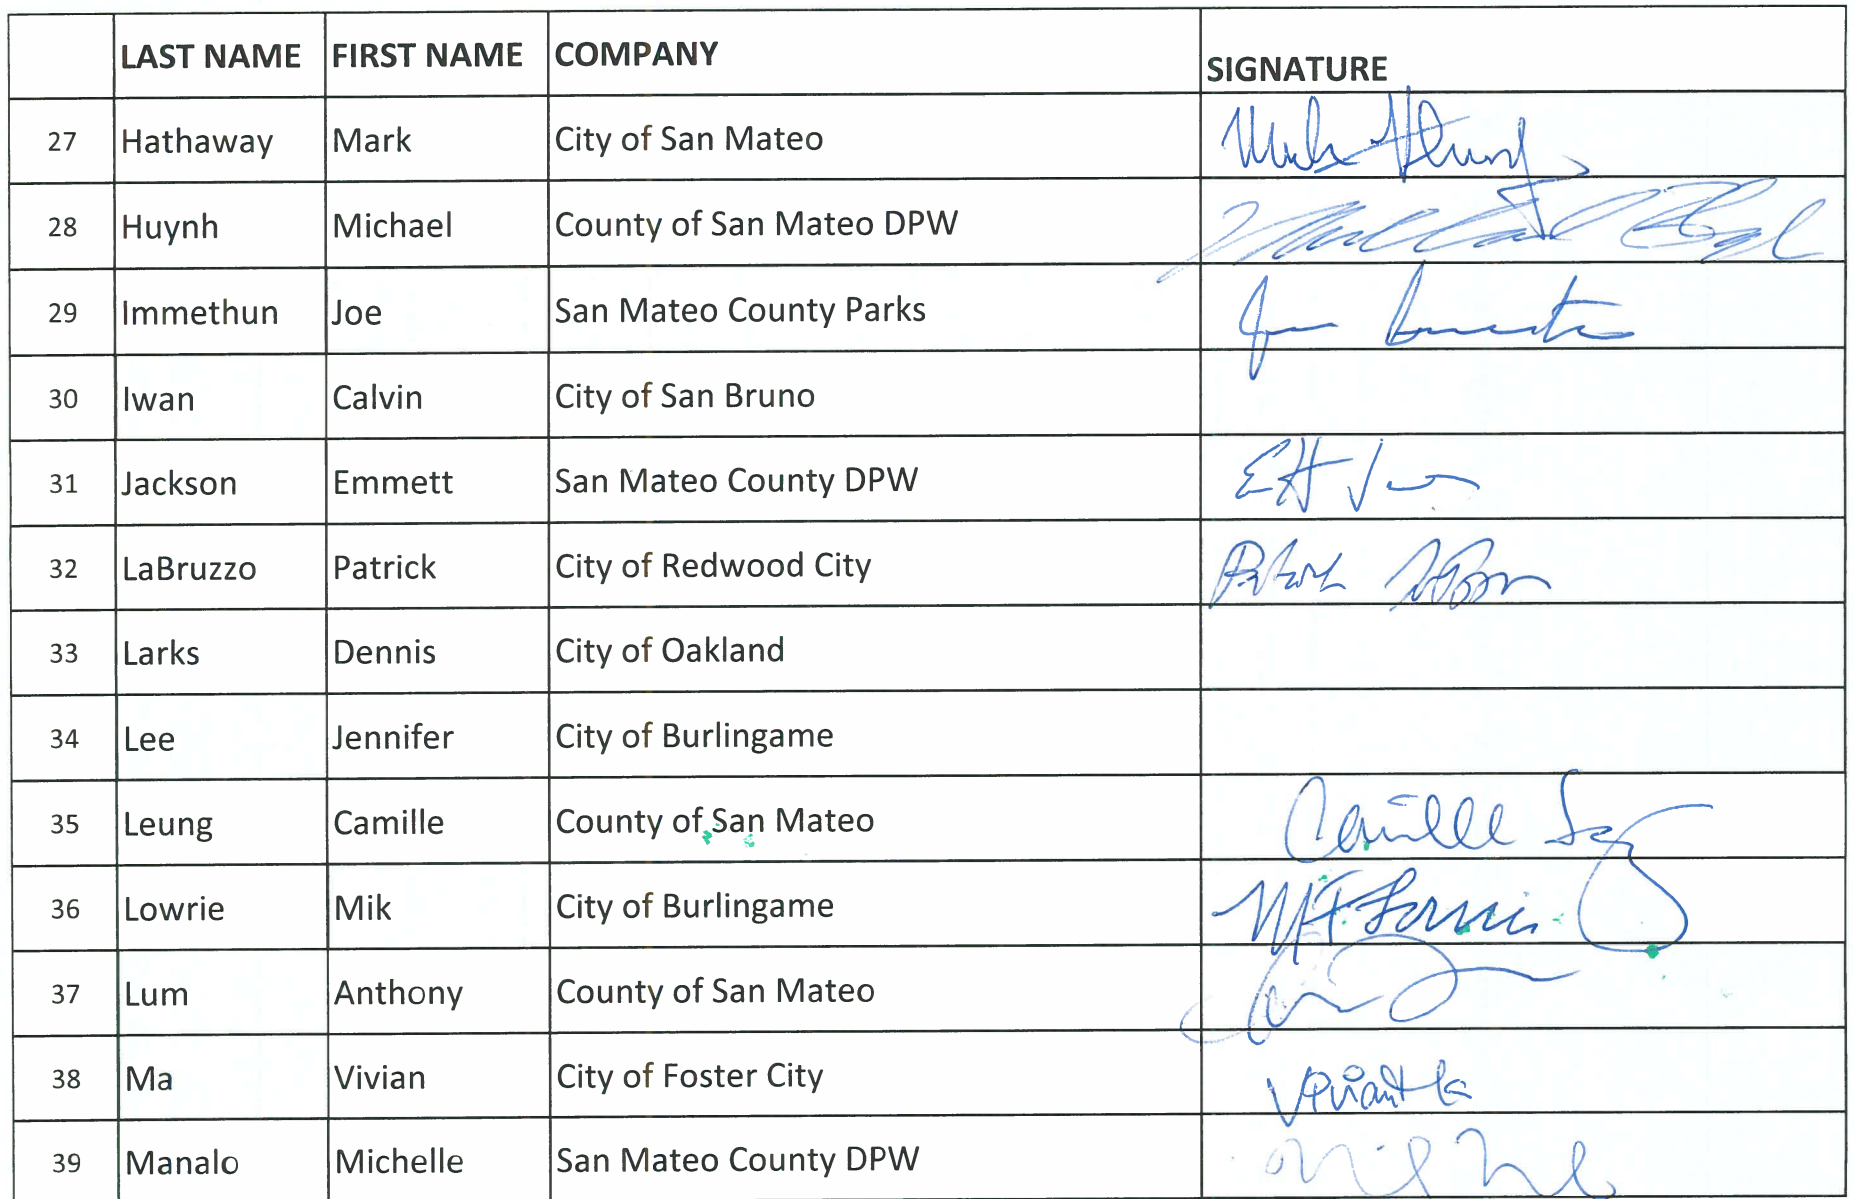 LAST NAME FIRST NAME COMPANY SIGNATURE
27 Hathaway Mark City of San Mateo
28 Huynh Michael County of San Mateo DPW
29 Immethun Joe San Mateo County Parks
30 Iwan Calvin City of San Bruno
31 Jackson Emmett San Mateo County DPW
32 LaBruzzo Patrick City of Redwood City
33 Larks Dennis City of Oakland
34 Lee Jennifer City of Burlingame
35 Leung Camille County of San Mateo Camille
36 Lowrie Mik City of Burlingame
37 Lum Anthony County of San Mateo
38 Ma Vivian City of Foster City
39 Manalo Michelle San Mateo County DPW